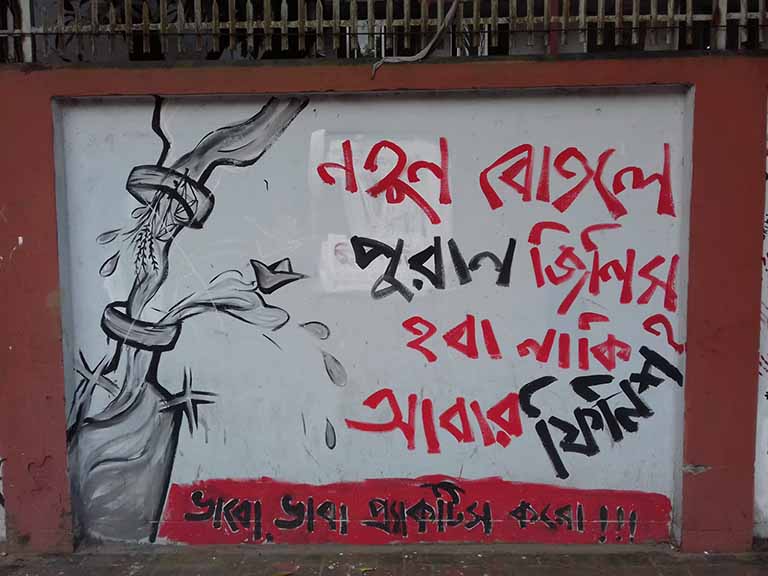 নতুন বোতলে
পুরান জিনিস
হবা নাকি ?
আবার ফিনিশ
ভাবো, ভাবা প্র্যাকটিস করো !!!